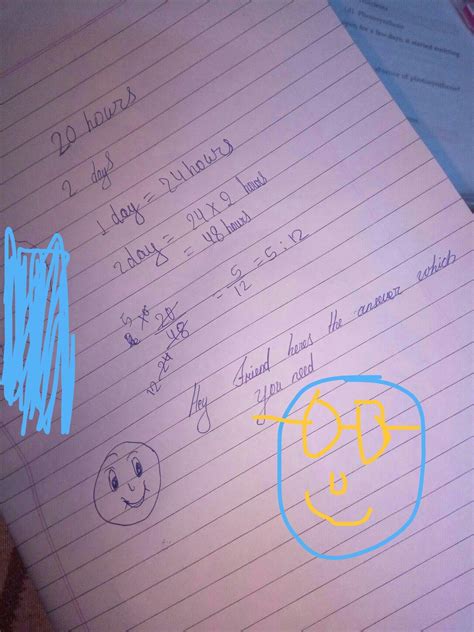 (d) Photosynthesis
20 hours
2 days
1 day = 24 hours
2 day = 24 × 2 hours
= 48 hours
20
48
24
5
12
= 5/12 = 5 : 12
Hey Friend heres the answer which
you need